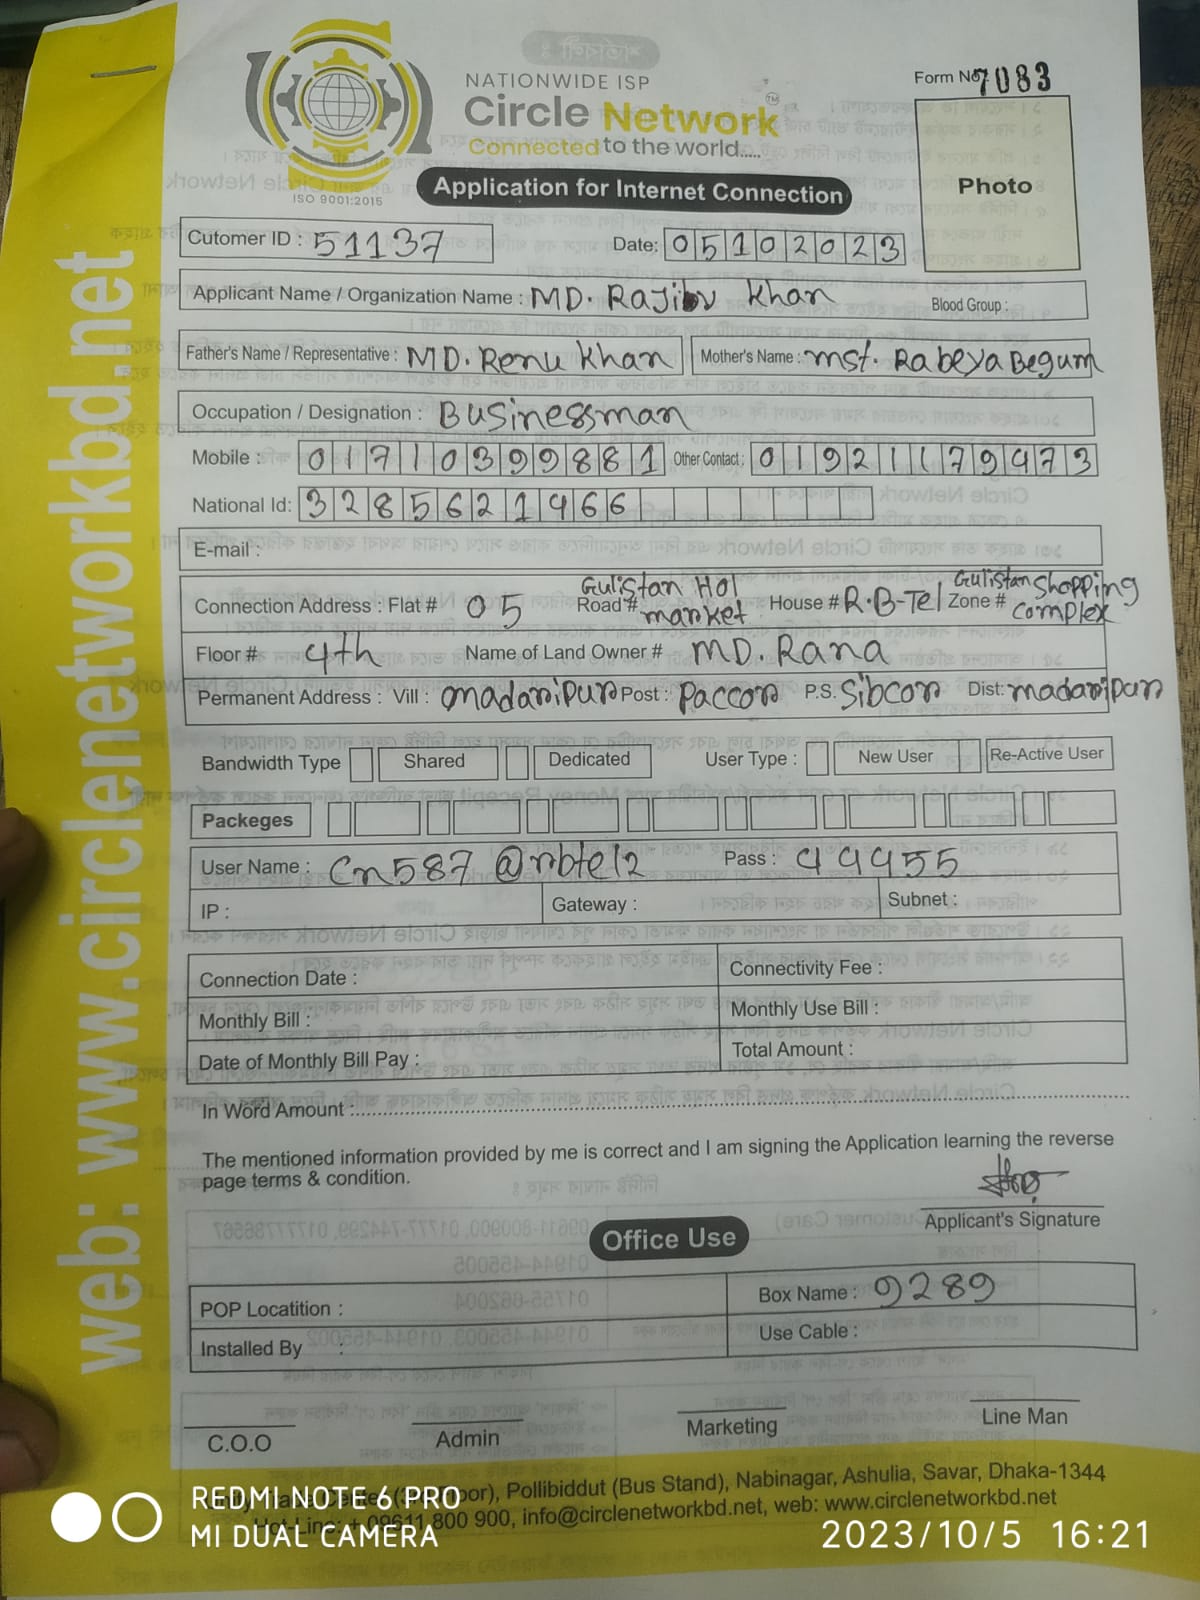 NATIONWIDE ISP
Circle Network™
Connected to the world.....
ISO 9001:2015
Form No 7083
Photo
Application for Internet Connection
Cutomer ID : 51137
Date: 05102023
Applicant Name / Organization Name : MD. Rajibv Khan
Blood Group :
Father's Name / Representative : MD. Renu Khan
Mother's Name : mst. Rabeya Begum
Occupation / Designation : Businessman
Mobile : 01710399881 Other Contact : 01921179473
National Id: 3285621966
E-mail :
Connection Address : Flat # 05 Road # Gulistan Hol market House # R.B-Tel Zone # Gulistan Shopping complex
Floor # 4th Name of Land Owner # MD. Rana
Permanent Address : Vill : madaripur Post : Paccor P.S. Sibcor Dist: madaripur
Bandwidth Type Shared Dedicated User Type : New User Re-Active User
Packeges
User Name : Cn587@rbtel2 Pass : 44455
IP : Gateway : Subnet :
Connection Date : Connectivity Fee :
Monthly Bill : Monthly Use Bill :
Date of Monthly Bill Pay : Total Amount :
In Word Amount :
The mentioned information provided by me is correct and I am signing the Application learning the reverse
page terms & condition.
Applicant's Signature
Office Use
POP Locatition : Box Name : 9289
Installed By : Use Cable :
C.O.O Admin Marketing Line Man
Pollibiddut (Bus Stand), Nabinagar, Ashulia, Savar, Dhaka-1344
Hot Line: + 09611 800 900, info@circlenetworkbd.net, web: www.circlenetworkbd.net
web: www.circlenetworkbd.net
REDMI NOTE 6 PRO
MI DUAL CAMERA
2023/10/5 16:21